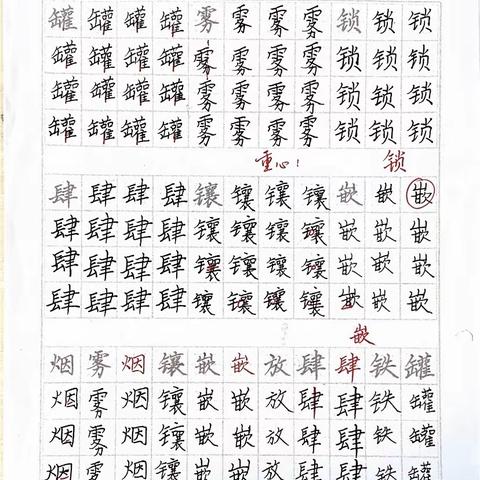 罐罐罐罐雾雾雾雾锁锁锁
罐罐罐罐雾雾雾雾锁锁锁
罐罐罐罐雾雾雾雾锁锁锁
罐罐罐罐雾雾雾雾锁锁锁
重心！ 锁
肆肆肆肆镶镶镶镶嵌嵌嵌
肆肆肆肆镶镶镶镶嵌嵌嵌
肆肆肆肆镶镶镶镶嵌嵌嵌
肆肆肆肆镶镶镶镶嵌嵌嵌
嵌
烟雾烟镶嵌嵌放肆肆铁罐
烟雾烟镶嵌嵌放肆肆铁罐
烟雾烟镶嵌嵌放肆肆铁罐
烟雾烟镶嵌嵌放肆肆铁罐